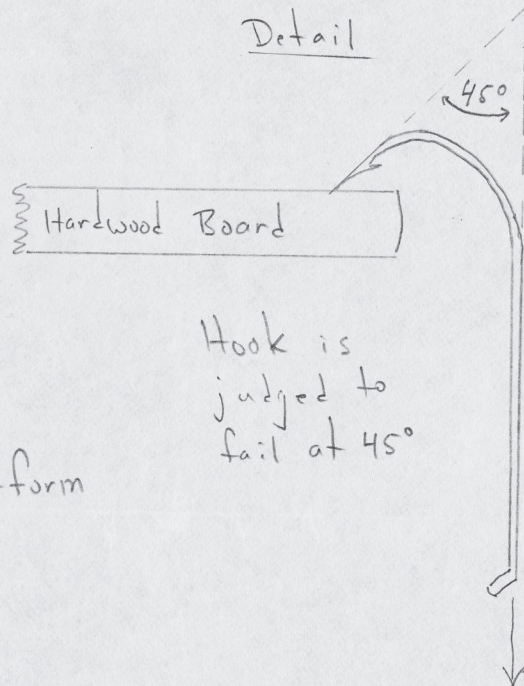 Detail
45°
Hardwood Board
Hook is
judged to
fail at 45°
form